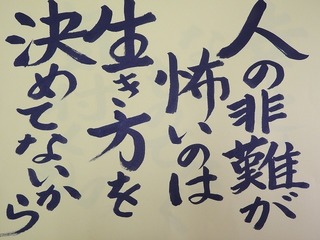 人の非難が
怖いのは
生き方を
決めてないから